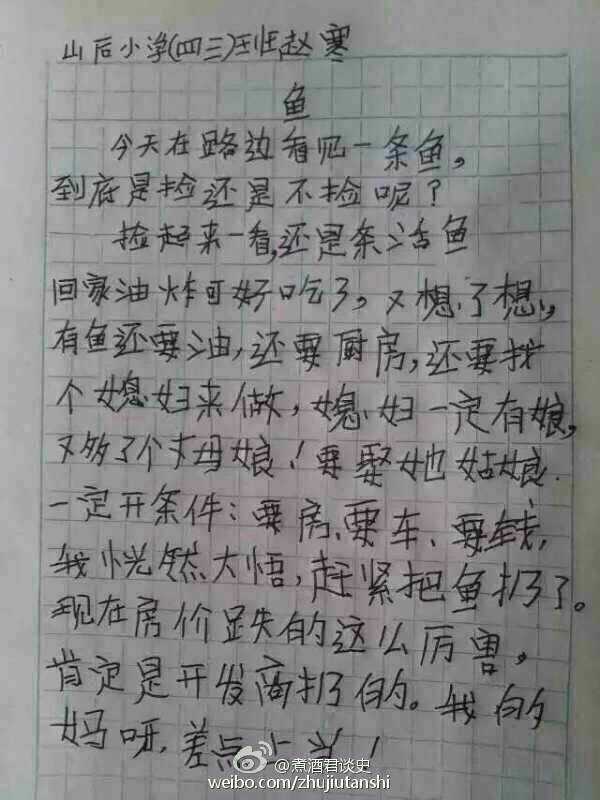 山后小学(四三)班,赵寒
鱼
今天在路边看见一条鱼,
到底是捡还是不捡呢?
捡起来一看,还是条活鱼
回家油炸可好吃了,又想了想,
有鱼还要油,还要厨房,还要找
个媳妇来做,媳妇一定有娘,
又多了个丈母娘!要娶她姑娘
一定开条件:要房、要车、要钱,
我恍然大悟,赶紧把鱼扔了。
现在房价跌的这么厉害,
肯定是开发商扔的。我的
妈呀,差点上当!
@煮酒君谈史
weibo.com/zhujiutanshi